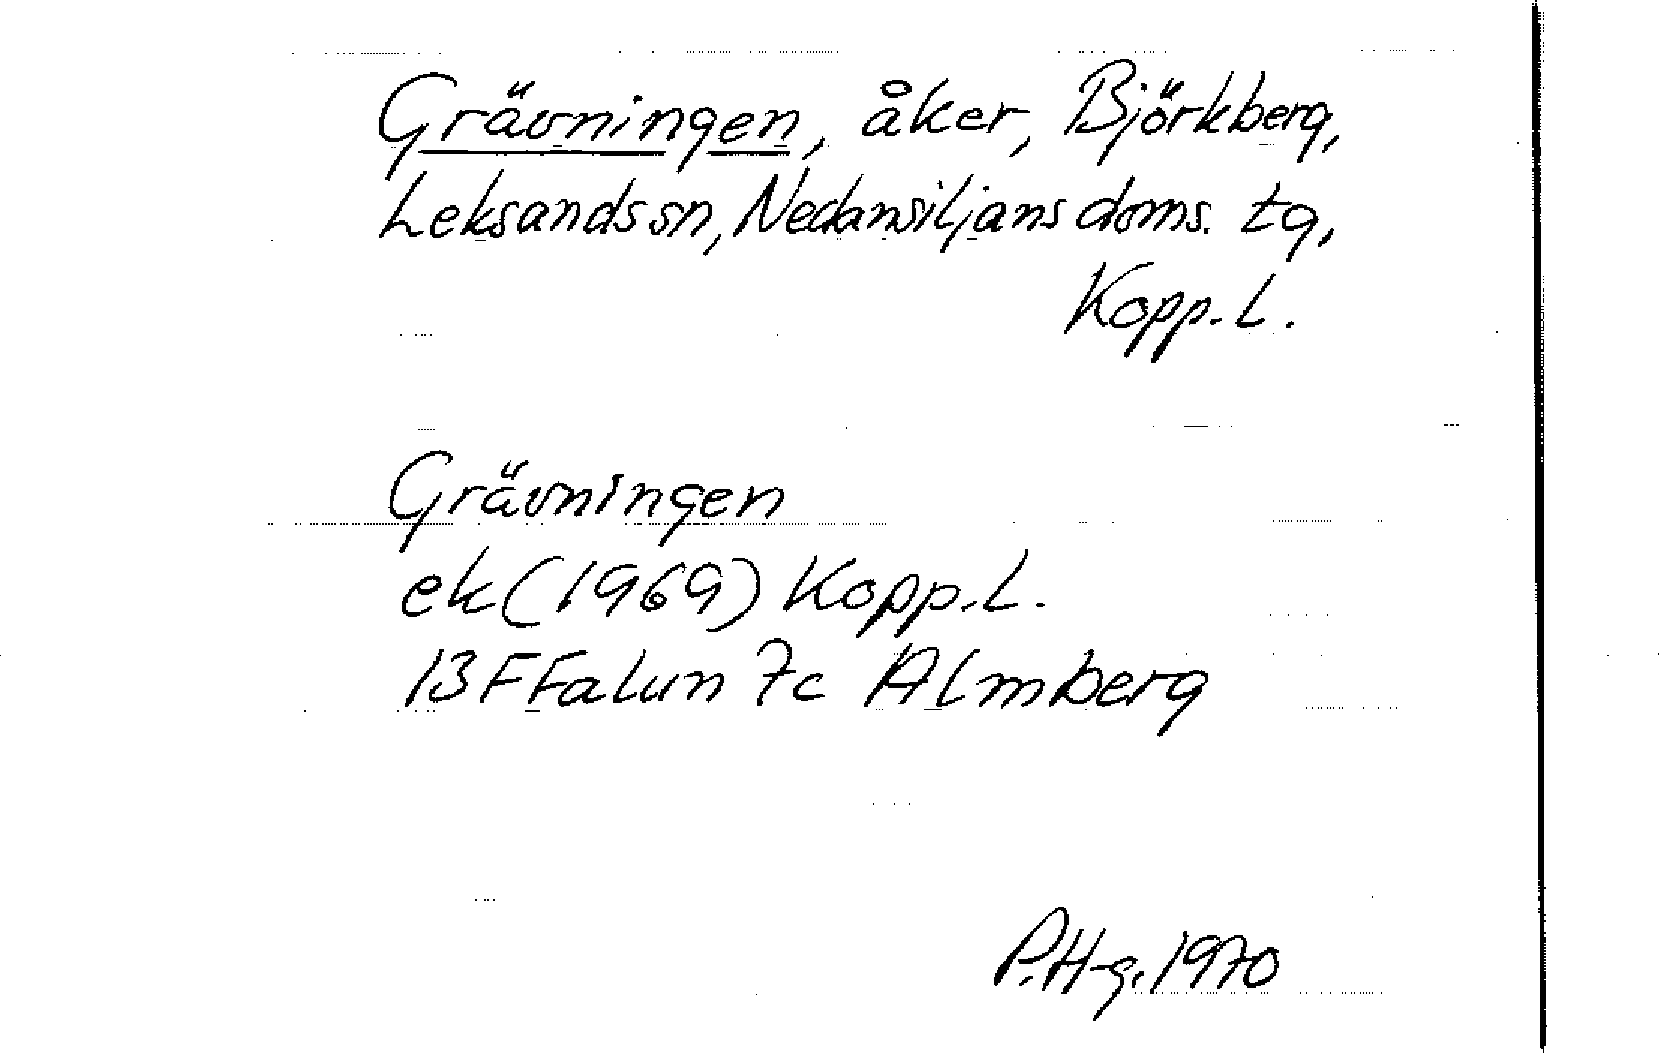 Grävningen, åker, Björkberg,
Leksands sn, Nedansiljans doms. tg,
Kopp. L.
Grävningen
ek (1969) Kopp. L.
13F Falun 7c Almberg
P. H-g. 1970